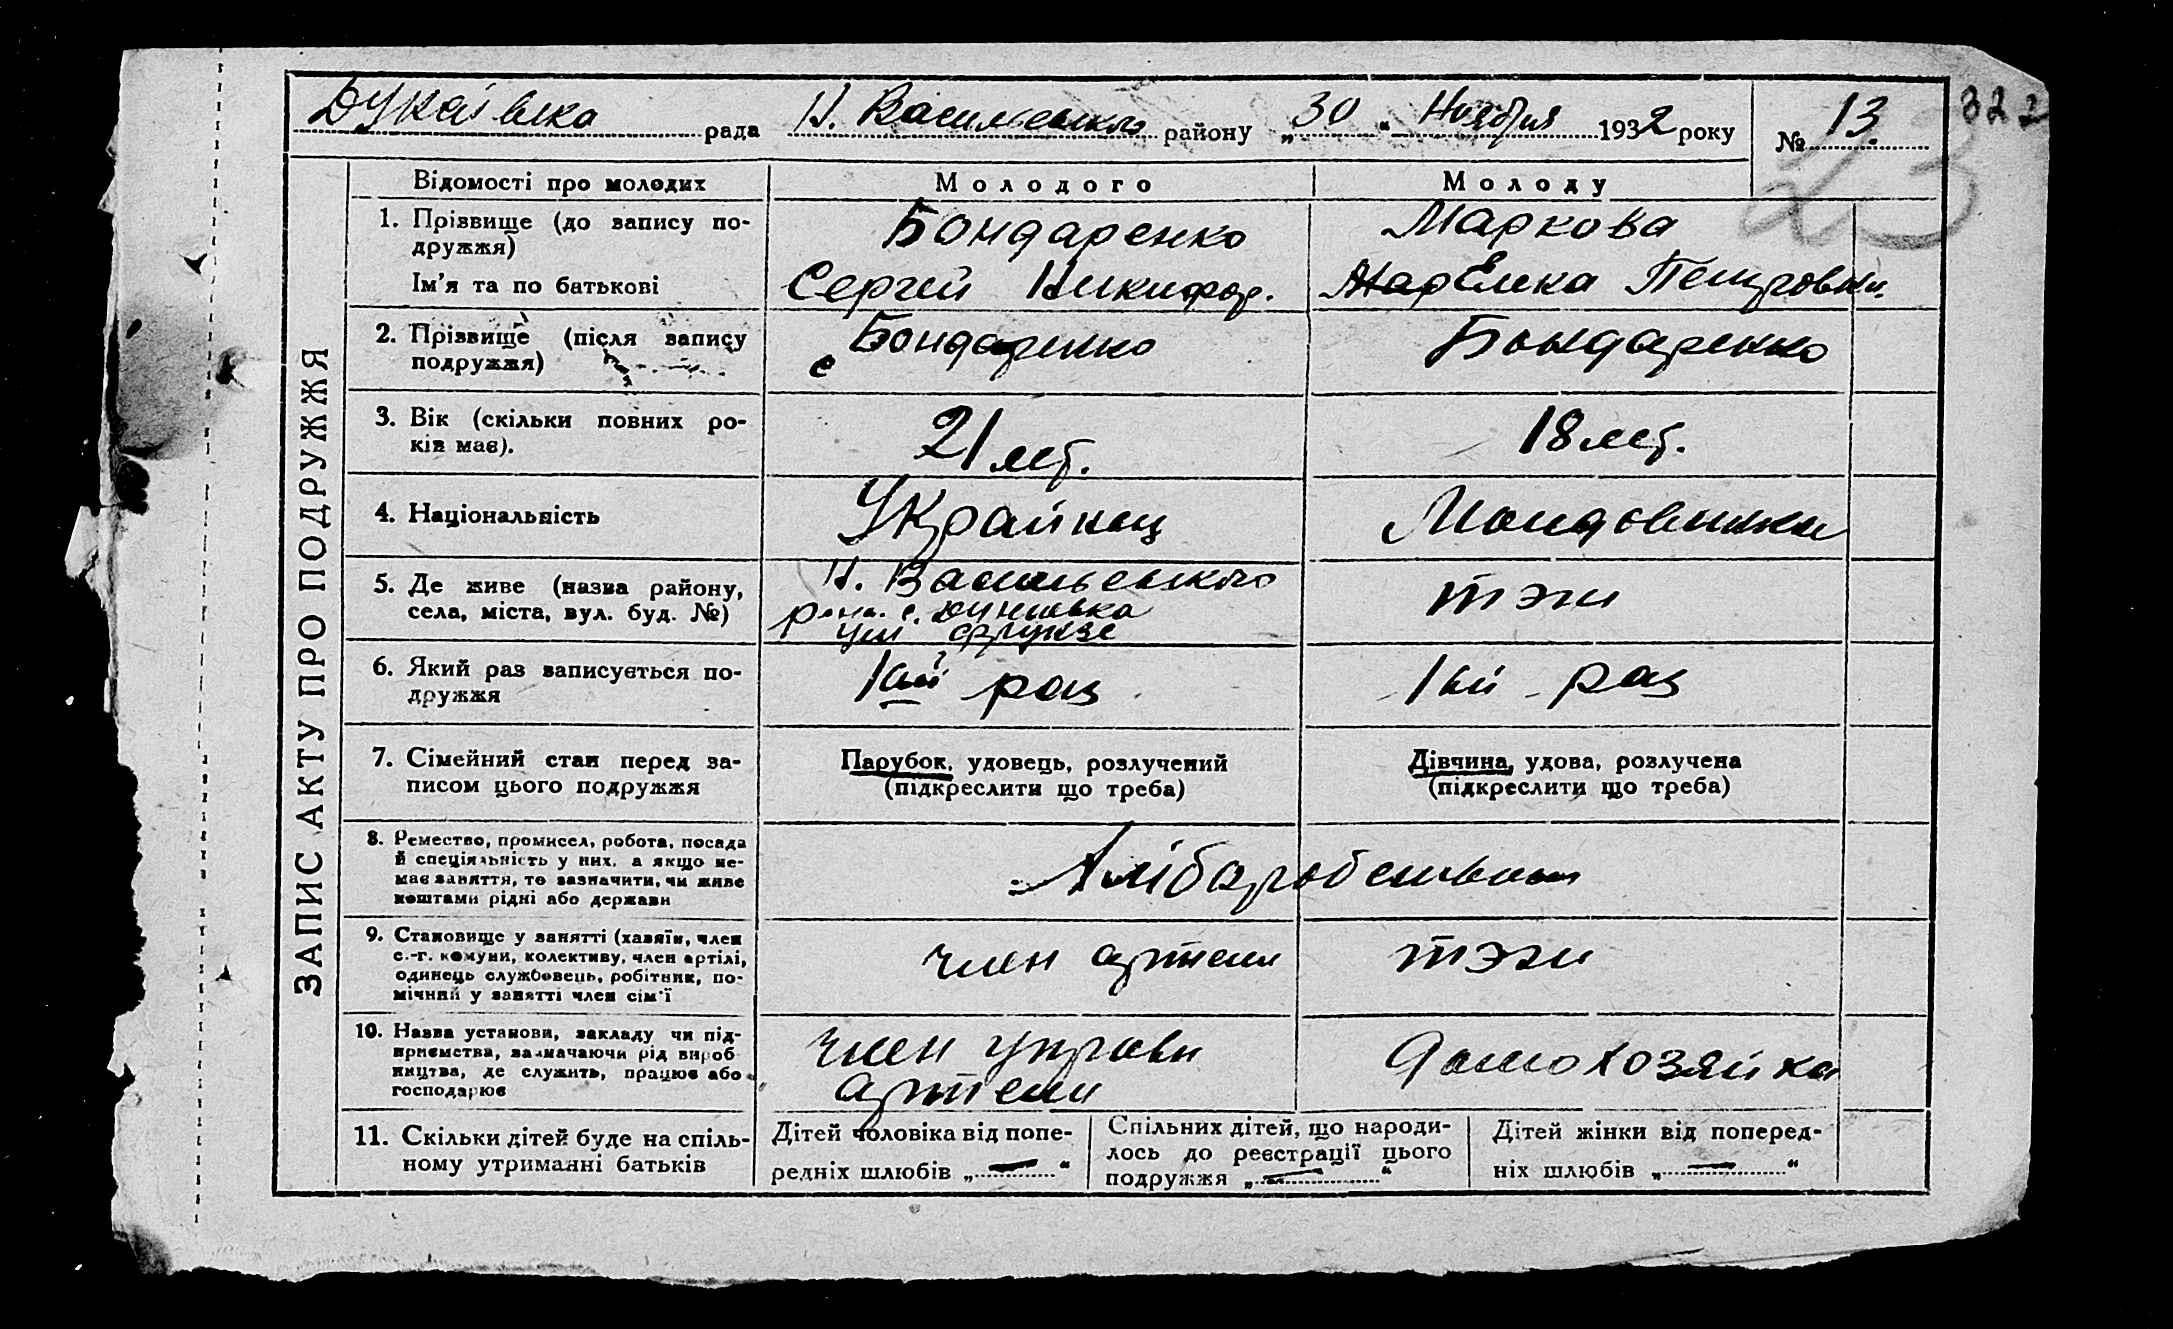 рада Н. Васильевского району „30“ Ноября 1932 року № 13.
322
23
ЗАПИС АКТУ ПРО ПОДРУЖЖЯ
Відомості про молодих
Молодого
Молоду
1. Прізвище (до запису по-
дружжя)
Бондаренко
Маркова
Ім'я та по батькові
Сергей Никифор.
Елена Петровна
2. Прізвище (після запису
подружжя)
Бондаренко
Бондаренко
3. Вік (скільки повних ро-
ків має).
21 лет.
18 лет.
4. Національність
Украйнец
Молдованка
5. Де живе (назва району,
села, міста, вул. буд. №)
Н. Васильевского
с.
тэж
6. Який раз записується по-
дружжя
1ый раз
1ый раз
7. Сімейний стан перед за-
писом цього подружжя
Парубок, удовець, розлучений
(підкреслити що треба)
Дівчина, удова, розлучена
(підкреслити що треба)
8. Ремество, промисел, робота, посада
й спеціяльність у них, а якщо не-
має заняття, то зазначити, чи живе
коштами рідні або держави
Хліборобством
9. Становище у занятті (хазяїн, член
с.-г. комуни, колективу, член артілі,
одинець службовець, робітник, по-
мічний у занятті член сім'ї
член артели
тэж
10. Назва установи, закладу чи під-
приємства, зазначаючи рід вироб-
ництва, де служить, працює або
господарює
член управи
артели
домохозяйка
11. Скільки дітей буде на спіль-
ному утриманні батьків
Дітей чоловіка від попе-
редніх шлюбів „—“
Спільних дітей, що народи-
лось до реєстрації цього
подружжя „—“
Дітей жінки від поперед-
ніх шлюбів „—“